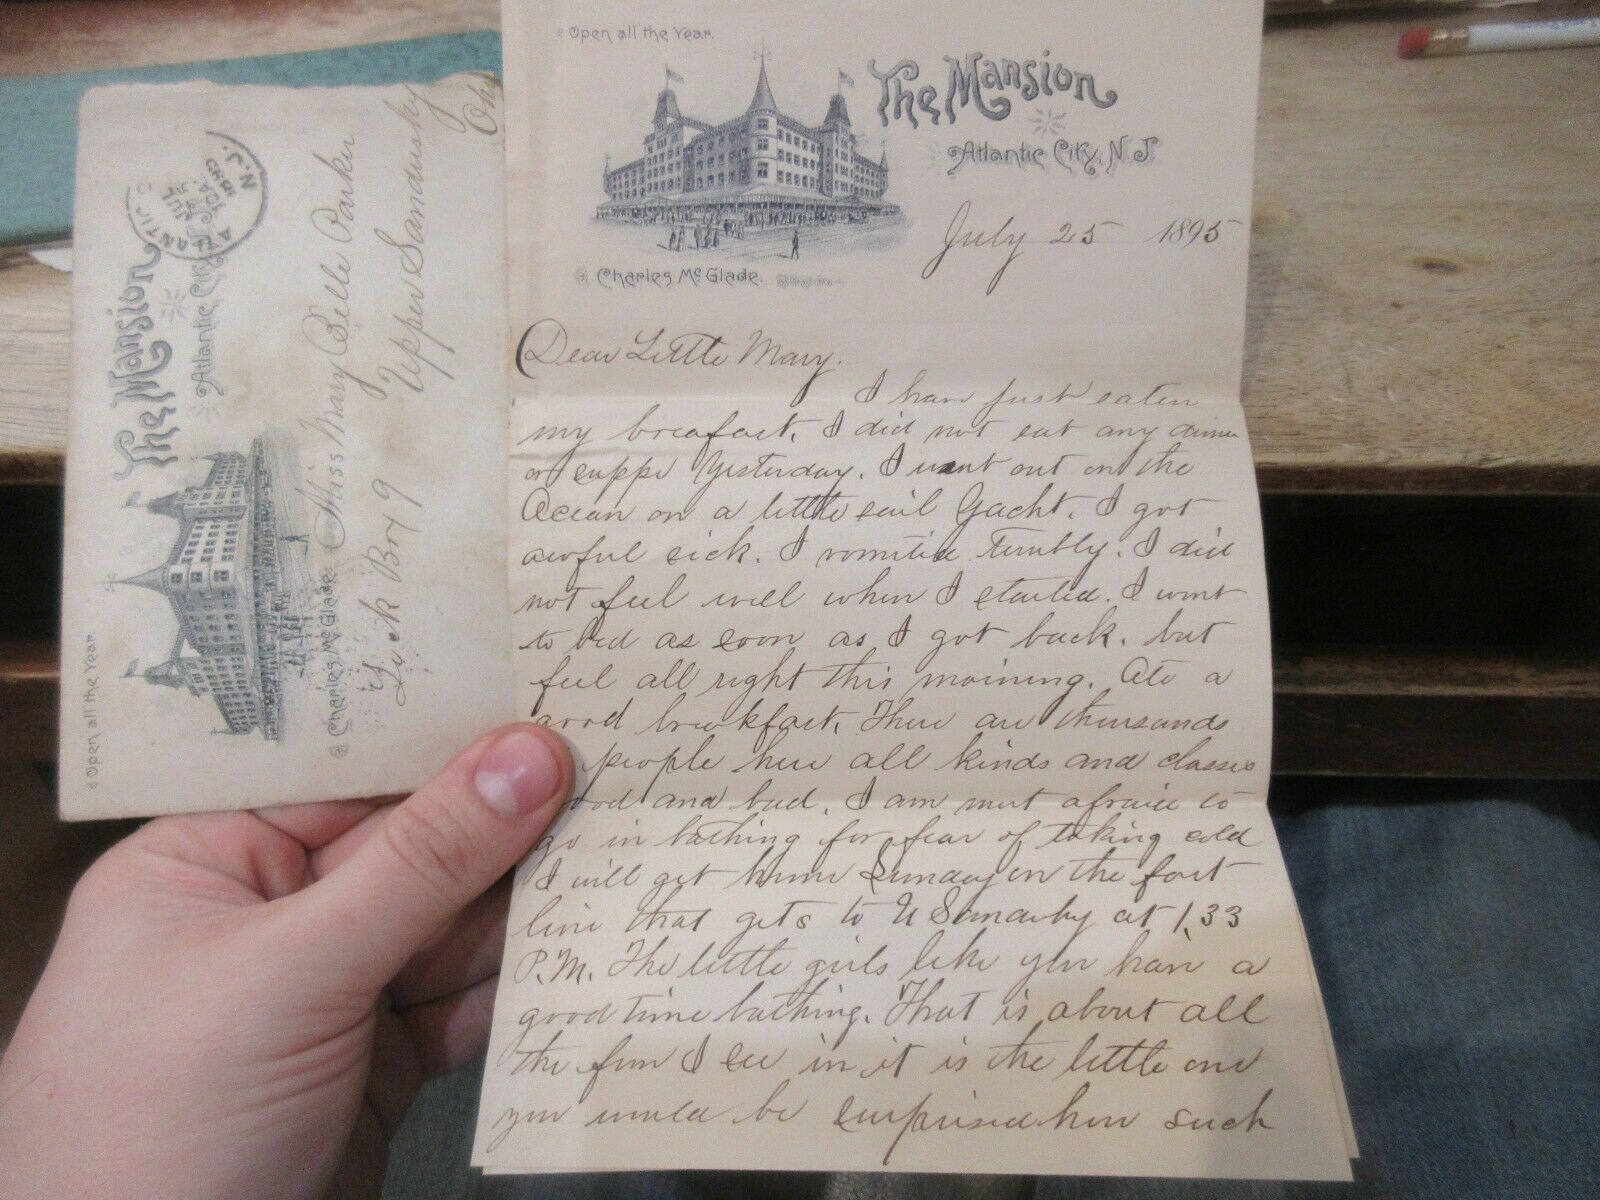 Open all the Year.
The Mansion
Atlantic City, N.J.
Charles McGlade.
ATLANTIC
N.J.
JUL
1895
Miss Mary Belle Parker
Lock Box 9
Upper Sandusky
Ohio
Open all the Year.
The Mansion
Atlantic City, N.J.
Charles McGlade.
July 25 1895
Dear Little Mary.
I have just eaten
my breafast. I did not eat any dinner
or supper Yesterday. I went out on the
Ocean on a little sail Yacht. I got
awful sick. I vomited Terribly. I did
not feel well when I started. I went
to bed as soon as I got back. but
feel all right this morning. Ate a
good breekfast. There are thousands
people here all kinds and classes
good and bad. I am most afraid to
go in bathing for fear of taking cold
I will get home Sunday on the fast
line that gets to U Sandusky at 1,33
P.M. The little girls like you have a
good time bathing. That is about all
the fun I see in it is the little one
you would be surprised how such